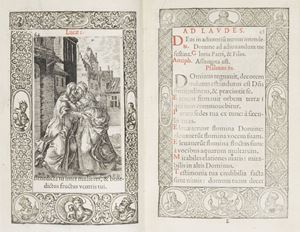 Lucæ 1.
dictus fructus ventris tui.
AD LAVDES.
Deus in adiutorium meum intende.
Domine ad adiuuandum me
festina. Gloria Patri, & Filio.
Antiph. Assumpta est.
Dominus regnauit, decorem
indutus est: indutus est Dñs
fortitudinem, & præcinxit se.
Etenim firmauit orbem terræ:
qui non commouebitur.
Parata sedes tua ex tunc: a sæculo
Eleuauerunt flumina Domine:
eleuauerunt flumina vocem suam.
Eleuauerunt flumina fluctus suos:
a vocibus aquarum multarum.
Mirabiles elationes maris: mirabilis
in altis Dominus.
Testimonia tua credibilia facta
sunt nimis: domum tuam decet